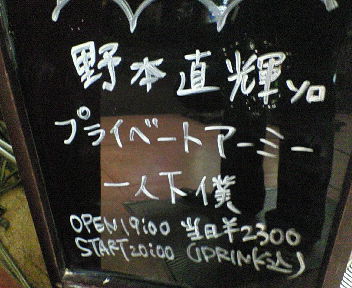 野本直輝 ソロ
プライベートアーミー
一人下僕
OPEN 19:00 当日¥2300
START 20:00 (1DRINK込)